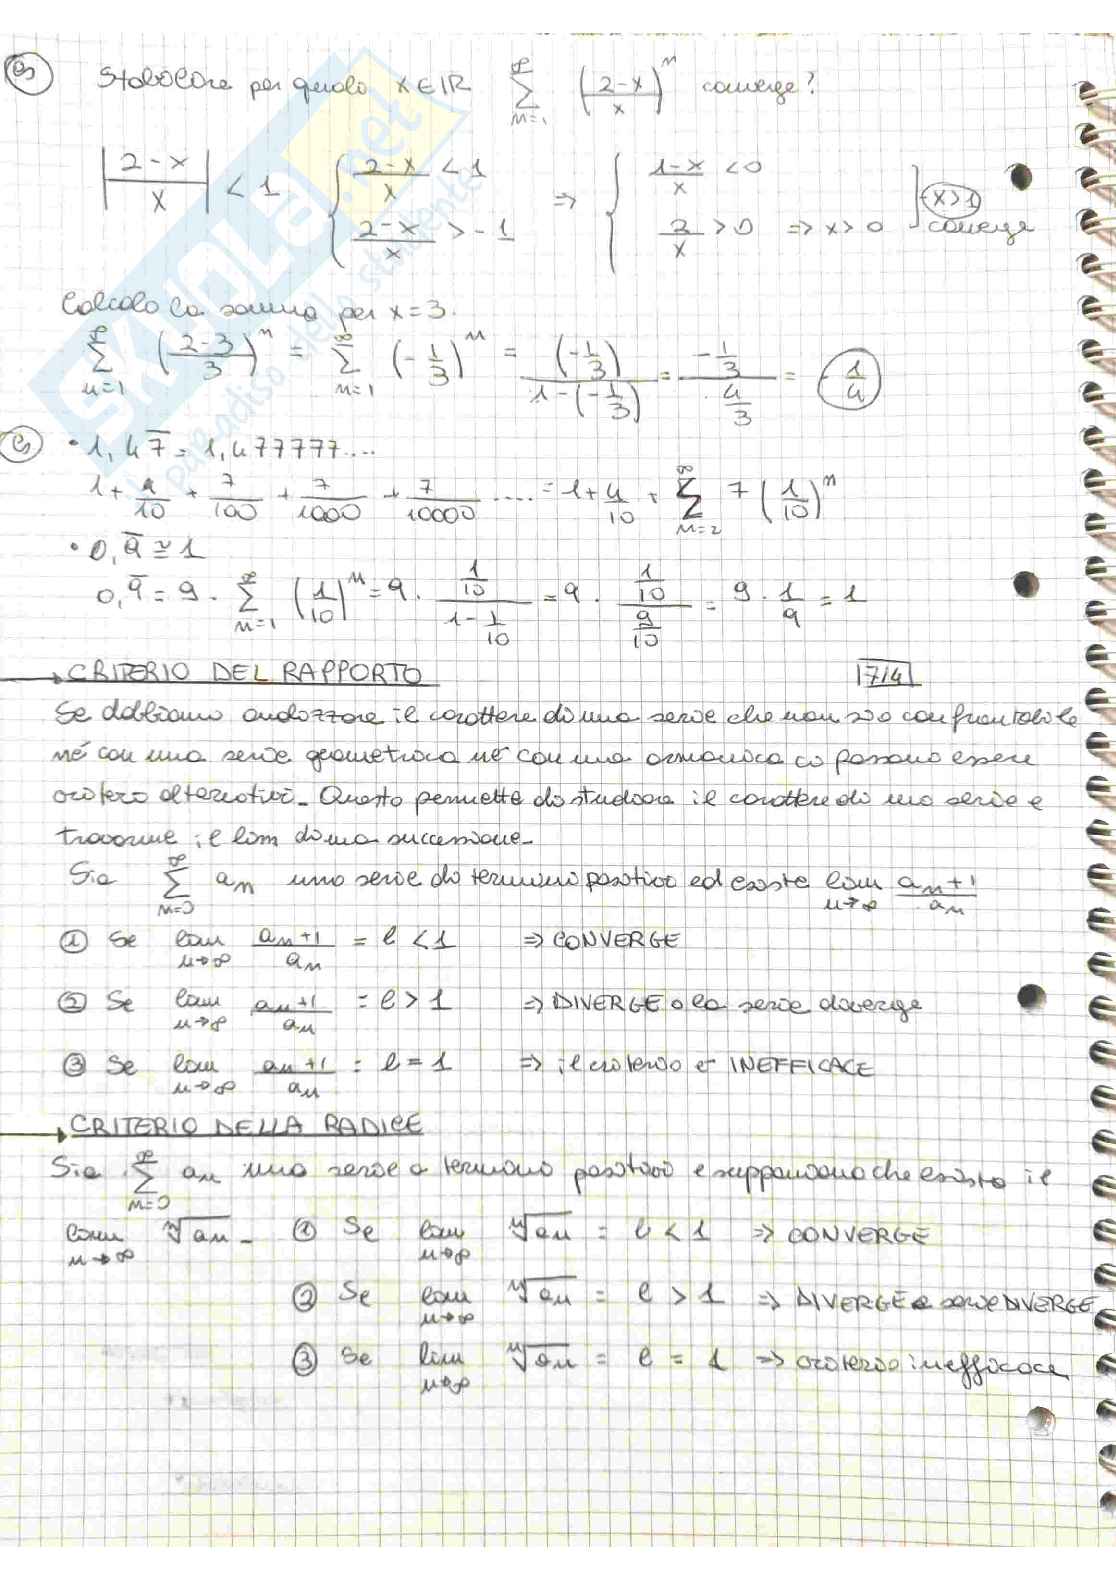 es Stabilire per quale x∈ℝ ∑_{n=1}^{∞} ((2-x)/x)^n converge?
|(2-x)/x| < 1 { (2-x)/x < 1 ; (2-x)/x > -1 ⇒ { (1-x)/x < 0 ; 2/x > 0 ⇒ x > 0 ] x>1 converge
Calcolo la somma per x=3.
∑_{n=1}^{∞} ((2-3)/3)^n = ∑_{n=1}^{∞} (-1/3)^n = (-1/3)/(1-(-1/3)) = (-1/3)/(4/3) = -1/4
es • 1,47̅ = 1,477777....
1 + 4/10 + 7/100 + 7/1000 + 7/10000 .... = 1 + 4/10 + ∑_{n=2}^{∞} 7 (1/10)^n
• 0,9̅ ≅ 1
0,9̅ = 9 · ∑_{n=1}^{∞} (1/10)^n = 9 · (1/10)/(1-1/10) = 9 · (1/10)/(9/10) = 9 · 1/9 = 1
→ CRITERIO DEL RAPPORTO 17/4
Se dobbiamo analizzare il carattere di una serie che non sia confrontabile
né con una serie geometrica né con una armonica ci possono essere
criteri alternativi. Questo permette di studiare il carattere di una serie e
trovarne il lim di una successione.
Sia ∑_{n=0}^{∞} a_n una serie di termini positivi ed esiste lim_{n→∞} a_{n+1}/a_n
① Se lim_{n→∞} a_{n+1}/a_n = l < 1 ⇒ CONVERGE
② Se lim_{n→∞} a_{n+1}/a_n = l > 1 ⇒ DIVERGE o la serie diverge
③ Se lim_{n→∞} a_{n+1}/a_n = l = 1 ⇒ il criterio è INEFFICACE
→ CRITERIO DELLA RADICE
Sia ∑_{n=0}^{∞} a_n una serie a termini positivi e supponiamo che esista il
lim_{n→∞} ⁿ√a_n - ① Se lim_{n→∞} ⁿ√a_n = l < 1 ⇒ CONVERGE
② Se lim_{n→∞} ⁿ√a_n = l > 1 ⇒ DIVERGE e serie DIVERGE
③ Se lim_{n→∞} ⁿ√a_n = l = 1 ⇒ criterio inefficace
SKUOLA.net
il paradiso dello studente